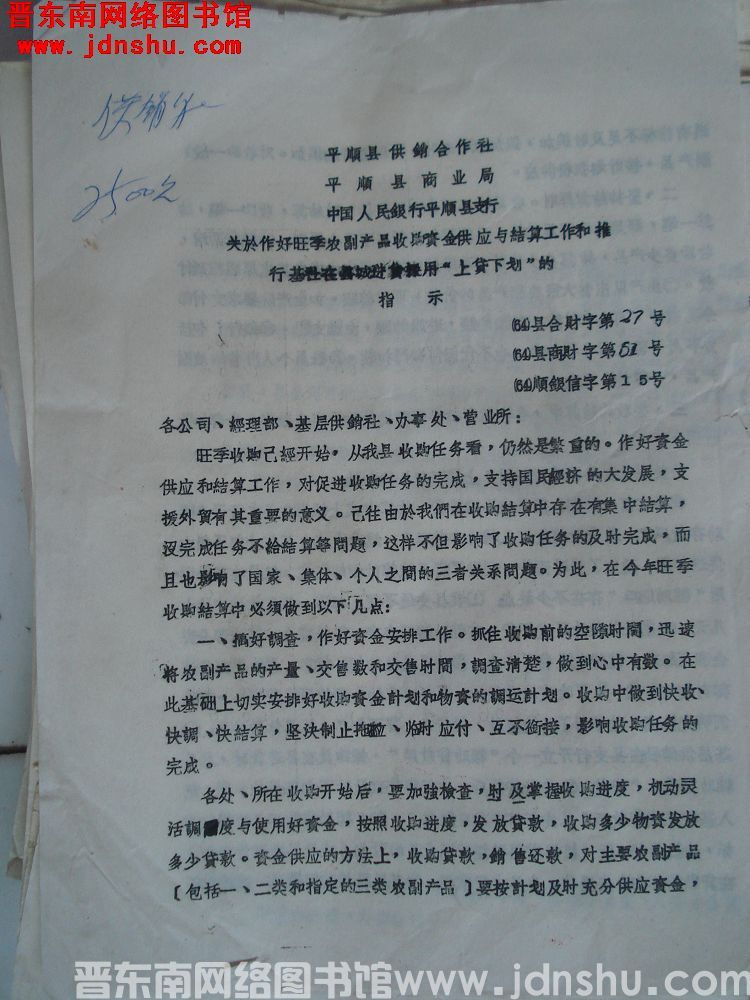 晋东南网络图书馆
www.jdnshu.com
供销社
2500元
平順县供銷合作社
平順县商业局
中国人民銀行平順县支行
关於作好旺季农副产品收购資金供应与結算工作和推
行基社在县城进貨採用“上貸下划”的
指示
(64)县合財字第27号
(64)县商財字第51号
(64)順銀信字第15号
各公司、經理部、基层供銷社、办事处、营业所：
旺季收购已經开始，从我县收购任务看，仍然是繁重的。作好資金
供应和結算工作，对促进收购任务的完成，支持国民經济的大发展，支
援外貿有其重要的意义。已往由於我們在收购結算中存在有集中結算，
沒完成任务不給結算等問題，这样不但影响了收购任务的及时完成，而
且也影响了国家、集体、个人之間的三者关系問題。为此，在今年旺季
收购結算中必须做到以下几点：
一、搞好調查，作好資金安排工作。抓住收购前的空隙时間，迅速
将农副产品的产量、交售数和交售时間，調查清楚，做到心中有数。在
此基础上切实安排好收购資金計划和物資的調运計划。收购中做到快收、
快調、快結算，坚决制止拖拉、临时应付、互不銜接，影响收购任务的
完成。
各处、所在收购开始后，要加強檢查，时及掌握收购进度，机动灵
活調度与使用好資金，按照收购进度，发放貸款，收购多少物資发放
多少貸款。資金供应的方法上，收购貸款，銷售还款，对主要农副产品
〔包括一、二类和指定的三类农副产品〕要按計划及时充分供应資金，
晋东南网络图书馆www.jdnshu.com